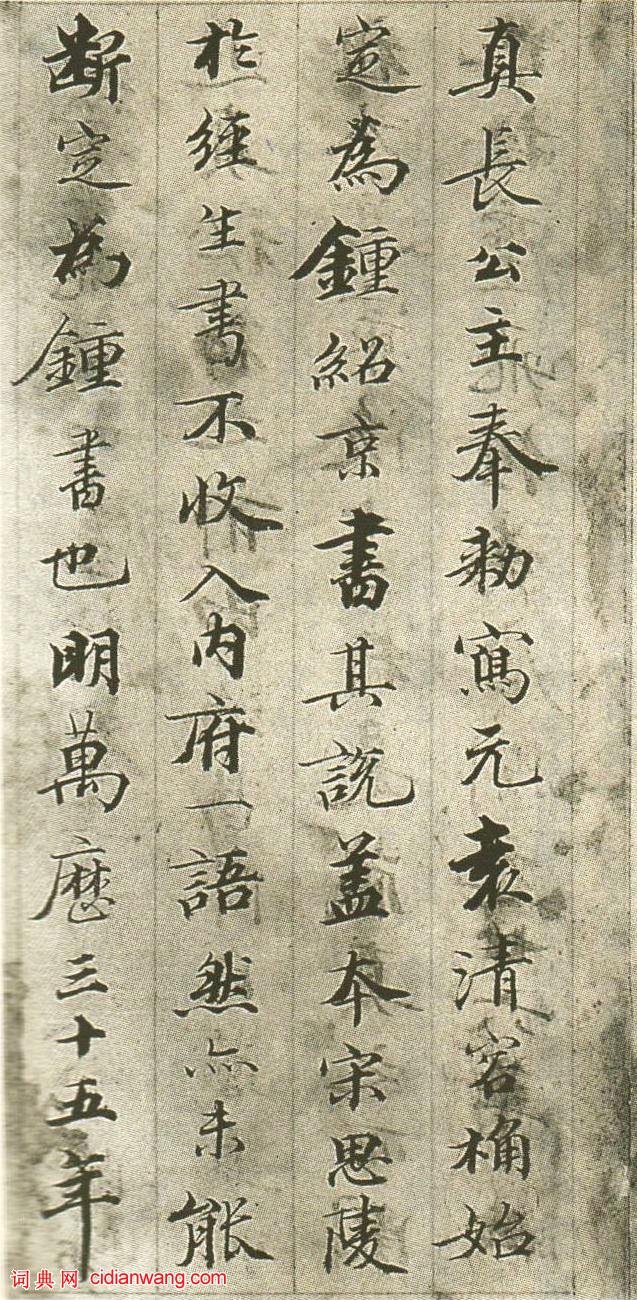 真長公主奉勅寫元袁清容桷始
定為鍾紹京書其說盖本宋思陵
於經生書不收入內府一語然亦未能
断定為鍾書也明萬歷三十五年
词典网 cidianwang.com